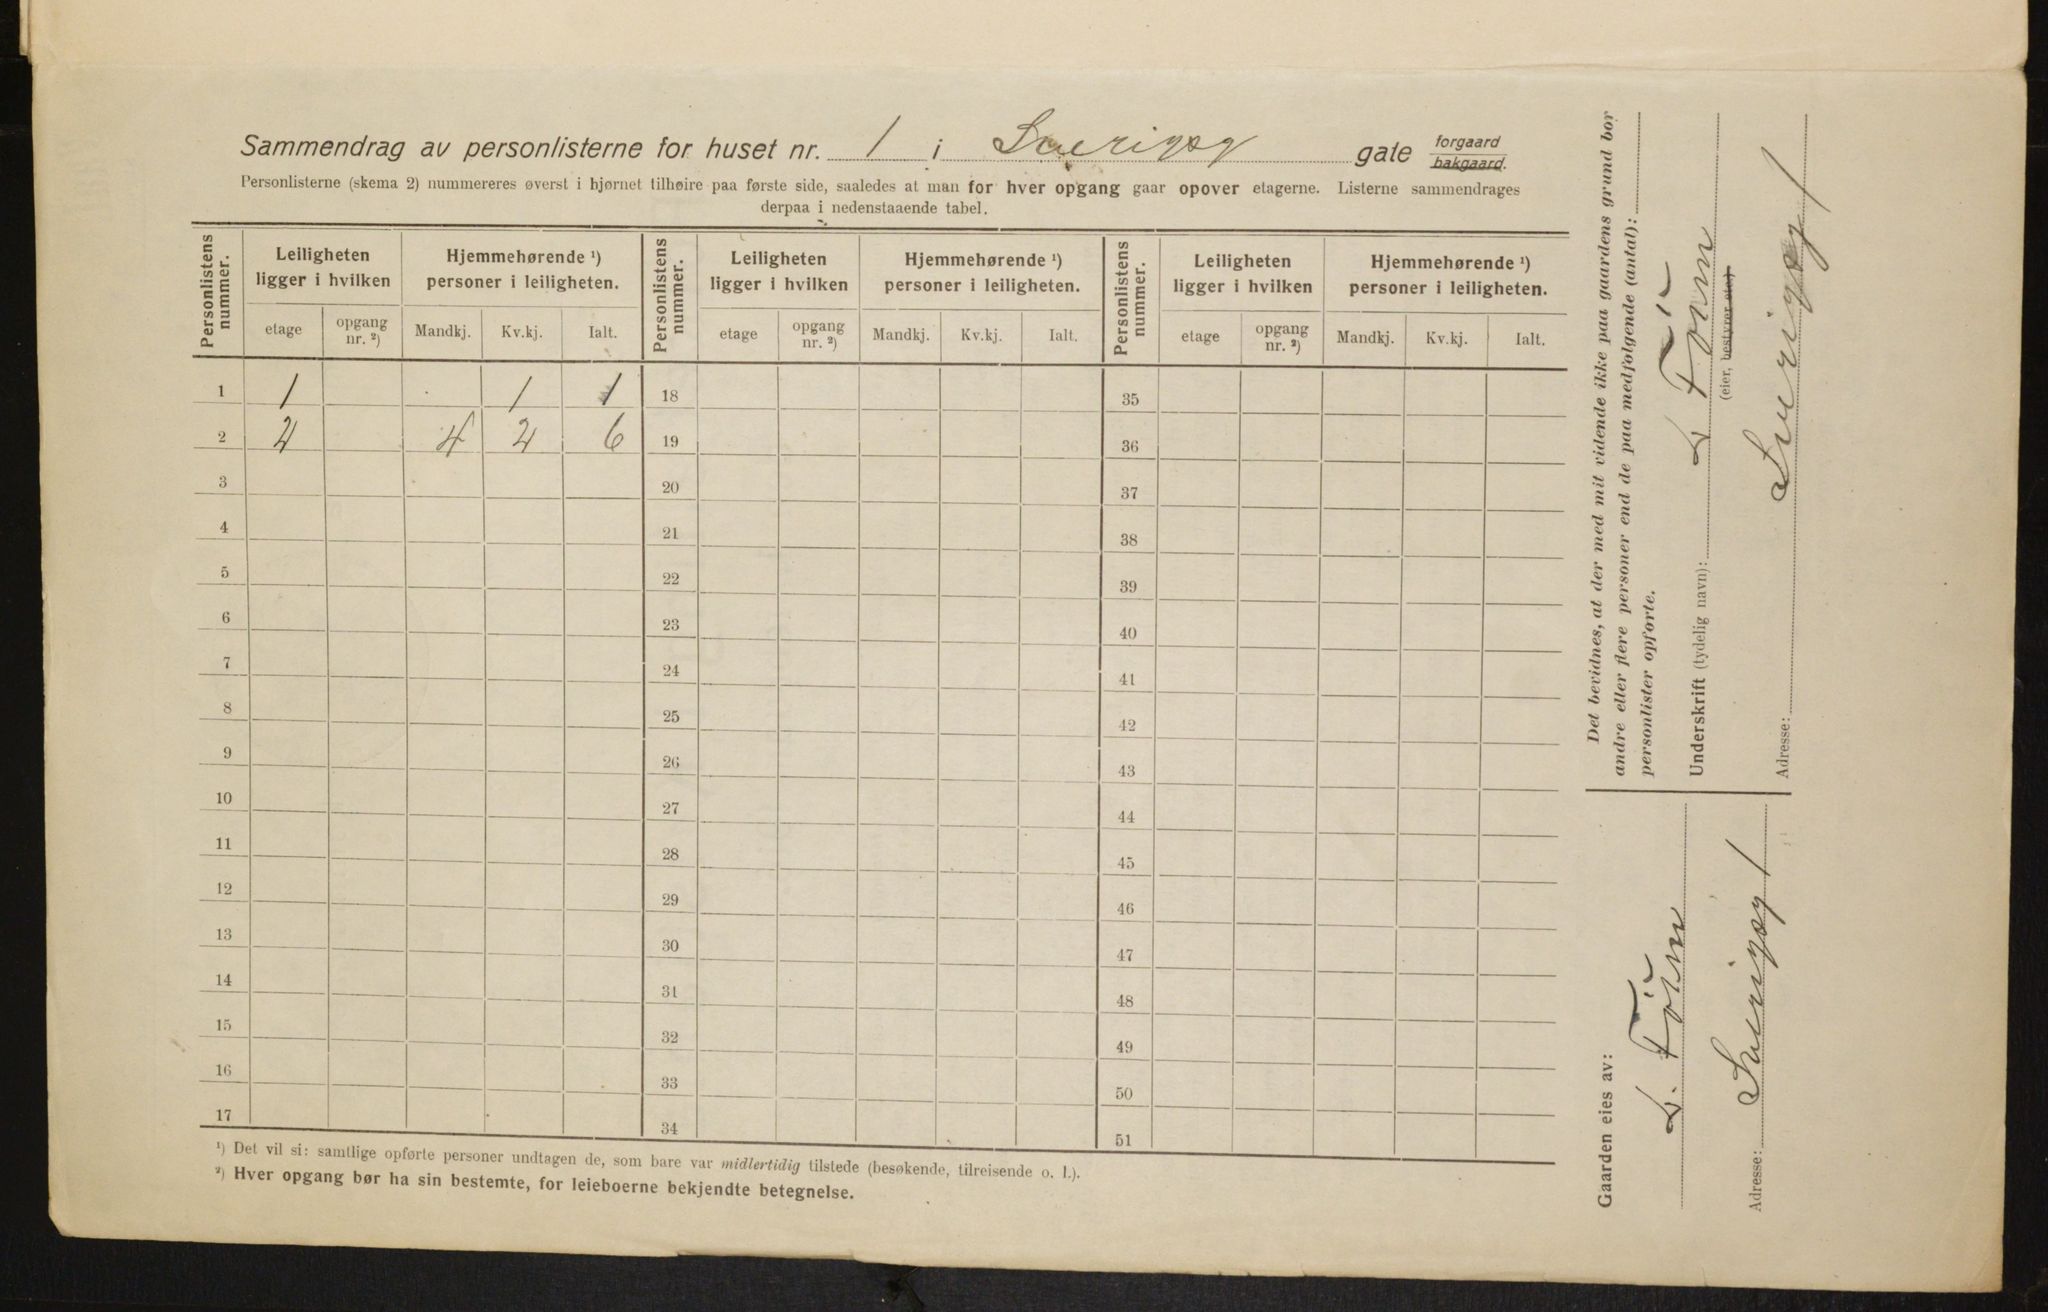 Sammendrag av personlisterne for huset nr. 1 i Sverigsg gate forgaard bakgaard.
Personlisterne (skema 2) nummereres øverst i hjørnet tilhøire paa første side, saaledes at man for hver opgang gaar opover etagerne. Listerne sammendrages
derpaa i nedenstaaende tabel.
Personlistens nummer. Leiligheten ligger i hvilken Hjemmehørende ¹) personer i leiligheten. Personlistens nummer. Leiligheten ligger i hvilken Hjemmehørende ¹) personer i leiligheten. Personlistens nummer. Leiligheten ligger i hvilken Hjemmehørende ¹) personer i leiligheten.
etage opgang nr. ²) Mandkj. Kv.kj. Ialt. etage opgang nr. ²) Mandkj. Kv.kj. Ialt. etage opgang nr. ²) Mandkj. Kv.kj. Ialt.
1 1 1 1 18 35
2 2 4 2 6 19 36
3 20 37
4 21 38
5 22 39
6 23 40
7 24 41
8 25 42
9 26 43
10 27 44
11 28 45
12 29 46
13 30 47
14 31 48
15 32 49
16 33 50
17 34 51
¹) Det vil si: samtlige opførte personer undtagen de, som bare var midlertidig tilstede (besøkende, tilreisende o. l.).
²) Hver opgang bør ha sin bestemte, for leieboerne bekjendte betegnelse.
Det bevidnes, at der med mit vidende ikke paa gaardens grund bor
andre eller flere personer end de paa medfølgende (antal):
personlister opførte.
Underskrift (tydelig navn):
(eier, bestyrer etc.)
Adresse: Sverigsg 1
Gaarden eies av:
Adresse: Sverigsg 1